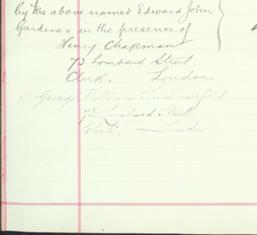 by the above named Edward John
Gardener in the presence of
Henry Chapman
73 Lombard Street
Clerk. London
George William
73 Lombard Street
Clerk. London